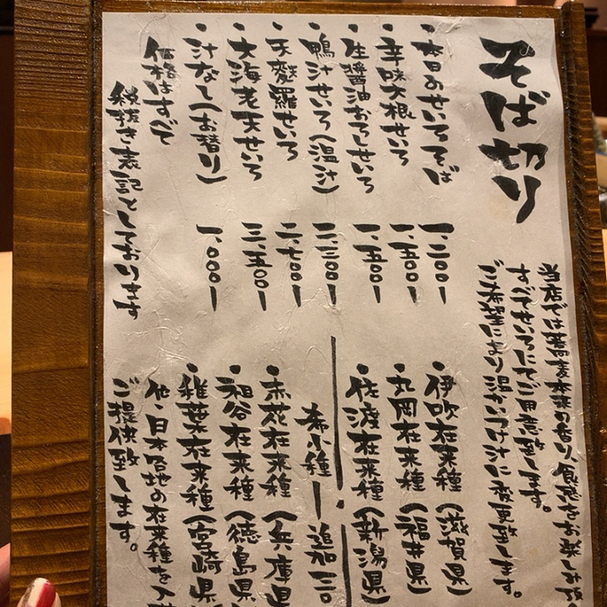 そば切り
当店では蕎麦本来の香り、食感をお楽しみ頂
すべてせいろにてご用意致します。
ご希望により温かいつけ汁に変更致します。
・本日のせいろそば 一、二〇〇ー
・辛味大根せいろ 一、五〇〇ー
・生醤油おろしせいろ 一、五〇〇ー
・鴨汁せいろ(温汁)
・天麩羅せいろ 二、七〇〇ー
・大海老天せいろ 三、五〇〇ー
・汁なし(お替り) 一、〇〇〇ー
価格はすべて
税抜き表記としております
・伊吹在来種(滋賀県)
・丸岡在来種(福井県)
・佐渡在来種(新潟県)
希少種ー追加三〇
・赤花在来種(兵庫県
・祖谷在来種(徳島県
・椎葉在来種(宮崎県
他、日本各地の在来種を入
ご提供致します。